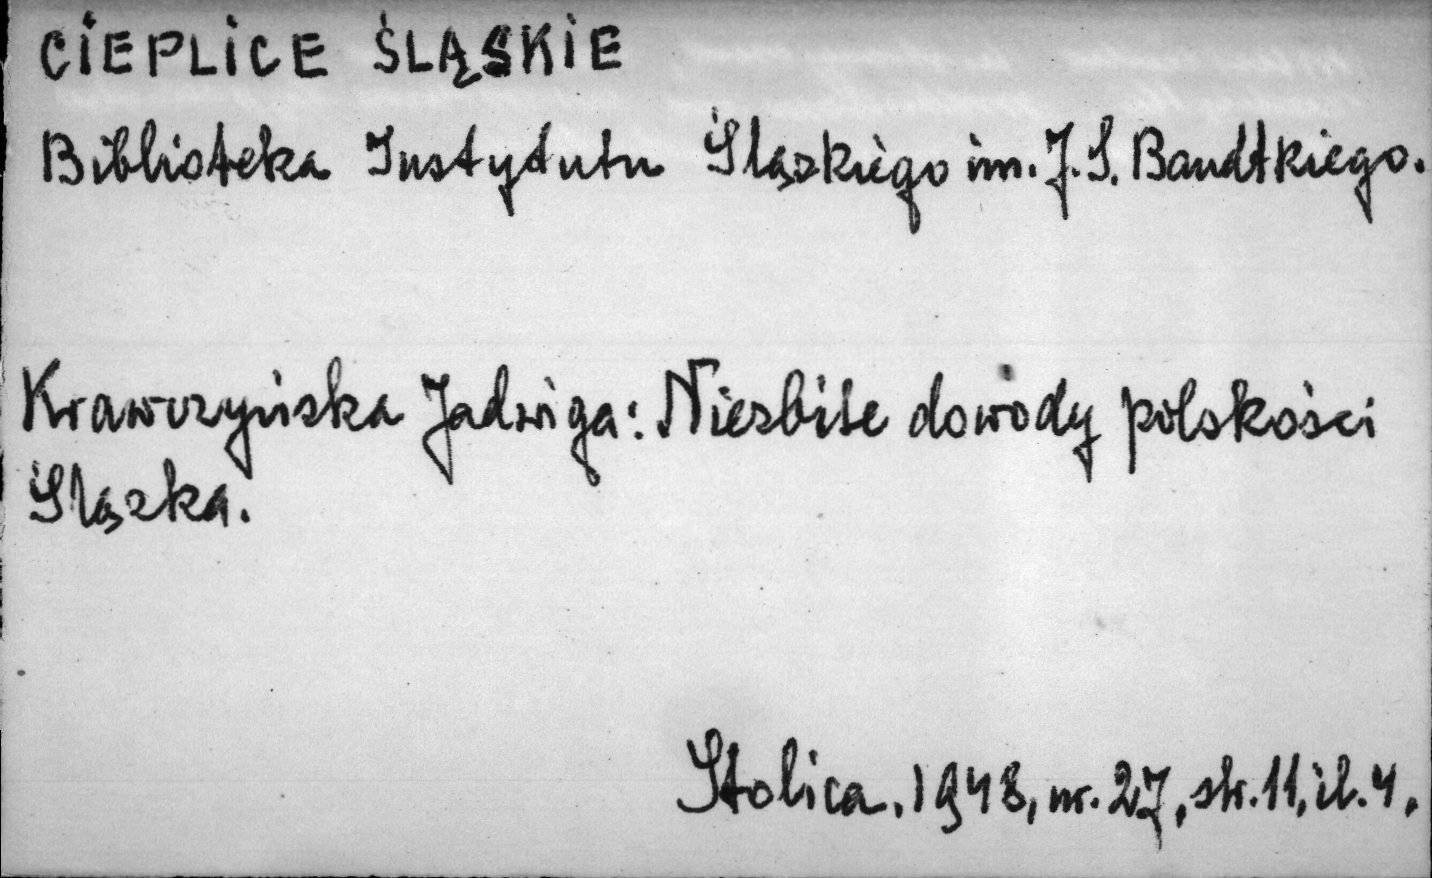 CIEPLICE ŚLĄSKIE
Biblioteka Instytutu Śląskiego im. J. S. Bandtkiego.
Krawczyńska Jadwiga: Niezbite dowody polskości
Śląska.
Stolica. 1948, nr. 27, str. 11, il. 4.